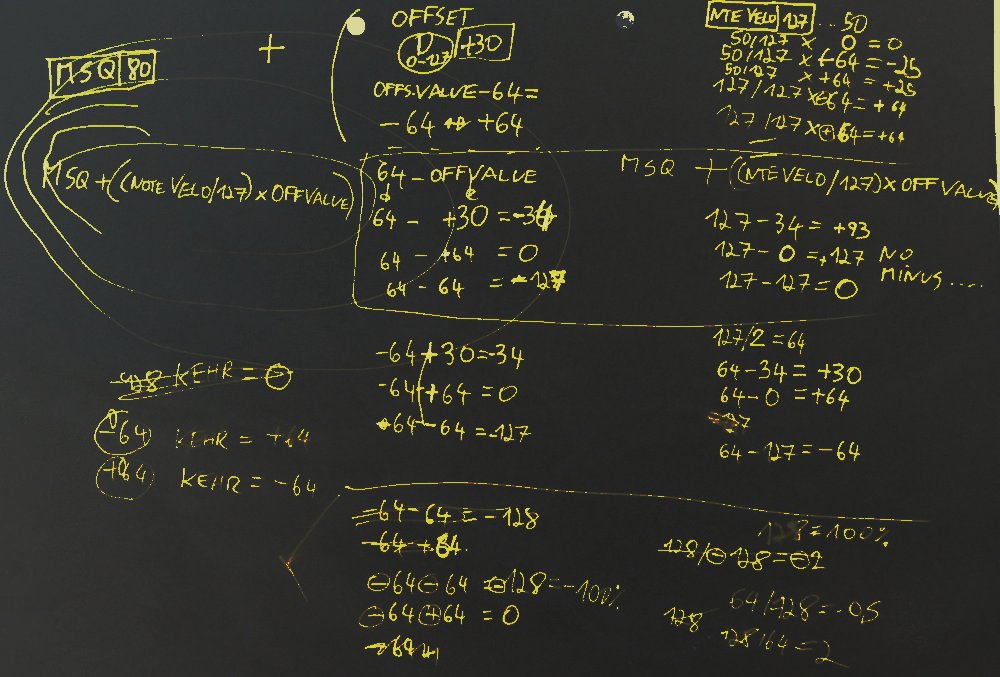 OFFSET
0-127 +30
OFFS.VALUE-64=
-64 +64
MSQ 80
+
NTE VELO 127 ...50
50/127 x 0 = 0
50/127 x -64 = -25
50/127 x +64 = +25
127/127 x 64 = +64
127/127 x ⊕64 = +64
MSQ + ((NOTE VELO/127) x OFFVALUE)
64 - OFFVALUE
64 - +30 = -34
64 - +64 = 0
64 - 64 = -127
MSQ + ((NTE VELO/127) x OFFVALUE
127-34 = +93
127-0 = +127 NO
127-127 = 0 MINUS ....
-64+30=-34
-64+64=0
64-64=-127
127/2=64
64-34=+30
64-0=+64
64-127=-64
KEHR = 0
-64 KEHR = +64
+64 KEHR = -64
-64-64=-128
-64+64
⊖64⊖64 ⊖128=-100%
⊖64⊕64 = 0
-64
128=100%
128/⊖128=⊖2
64/128=-05
128
128/64=2